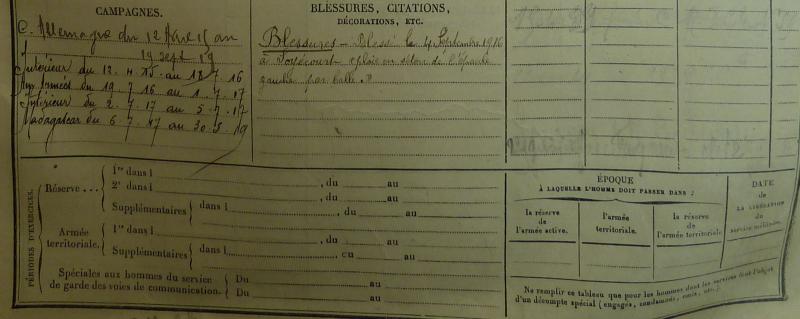 CAMPAGNES.
C. Allemagne du 12 Avril 15 au
19 sept 19
Intérieur du 12. 4. 15. au 18. 7. 16
Aux Armées du 19. 7. 16 au 1. 7. 17
Intérieur du 2. 7. 17 au 5. 7. 17
Madagascar du 6. 7. 17 au 30. 5. 19
BLESSURES, CITATIONS,
DÉCORATIONS, ETC.
Blessures - Blessé le 4 Septembre 1916
à Soyécourt "plaie en séton de l'épaule
gauche par balle."
PÉRIODES D'EXERCICES.
Réserve ...
1re dans l , du au
2e dans l , du au
Supplémentaires dans l , du au
Armée territoriale.
1re dans l , du au
Supplémentaires dans l , cu au
Spéciales aux hommes du service
de garde des voies de communication.
Du au
Du au
ÉPOQUE
À LAQUELLE L'HOMME DOIT PASSER DANS :
la réserve
de l'armée active.
l'armée
territoriale.
la réserve
de l'armée territoriale
DATE
de
LA LIBÉRATION
du
service militaire.
Ne remplir ce tableau que pour les hommes dont les services font l'objet
d'un décompte spécial (engagés, condamnés, omis, etc.)